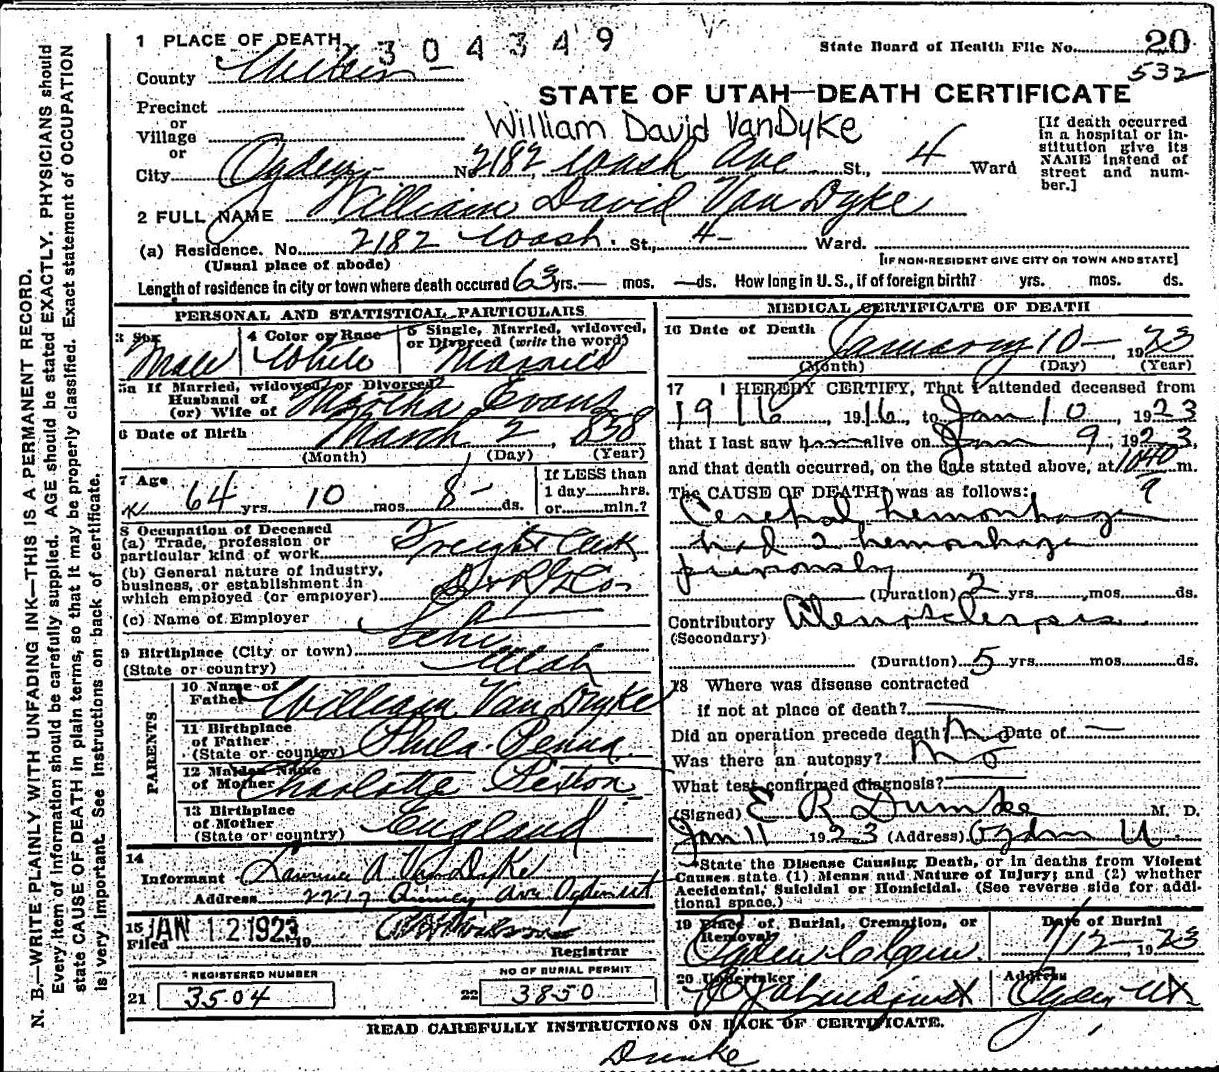 1 PLACE OF DEATH 304349
State Board of Health File No. 20
532
County Weber
STATE OF UTAH—DEATH CERTIFICATE
Precinct
or
Village
or
William David VanDyke
City Ogden No. 2182 Wash Ave St., 4 Ward
[If death occurred in a hospital or institution give its NAME instead of street and number.]
2 FULL NAME William David Van Dyke
(a) Residence. No. 2182 Wash. St., 4 Ward.
(Usual place of abode)
[IF NON-RESIDENT GIVE CITY OR TOWN AND STATE]
Length of residence in city or town where death occured 63 yrs.— mos. —ds. How long in U.S., if of foreign birth? yrs. mos. ds.
PERSONAL AND STATISTICAL PARTICULARS
3 Sex Male
4 Color or Race White
5 Single, Married, widowed, or Divorced (write the word) Married
5a If Married, widowed, or Divorced
Husband of
(or) Wife of Martha Evans
6 Date of Birth March 2, 1858
(Month) (Day) (Year)
7 Age 64 yrs 10 mos 8 ds.
If LESS than
1 day hrs.
or min.?
8 Occupation of Deceased
(a) Trade, profession or particular kind of work Freight Clerk
(b) General nature of industry, business, or establishment in which employed (or employer)
(c) Name of Employer
9 Birthplace (City or town) Lehi
(State or country) Utah
PARENTS
10 Name of Father William Van Dyke
11 Birthplace of Father (State or country) Phila. Penna
12 Maiden Name of Mother Charlotte Sexton
13 Birthplace of Mother (State or country) England
14
Informant A. VanDyke
Address 2217 Quincy Ave Ogden Ut
15
Filed JAN 12 1923 19
Registrar
REGISTERED NUMBER
21 3504
NO OF BURIAL PERMIT
22 3850
MEDICAL CERTIFICATE OF DEATH
16 Date of Death January 10— 1923
(Month) (Day) (Year)
17 I HEREBY CERTIFY, That I attended deceased from
1916 1916, to Jan 10 1923
that I last saw him alive on Jan 9, 1923,
and that death occurred, on the date stated above, at 1040 m.
The CAUSE OF DEATH was as follows:
Cerebral hemorrhage
had 2 hemorrhage
previously
(Duration) 2 yrs. mos. ds.
Contributory
(Secondary)
(Duration) 5 yrs. mos. ds.
18 Where was disease contracted
if not at place of death?
Did an operation precede death? No Date of —
Was there an autopsy? No
What test confirmed diagnosis?
(Signed) E R Dumke M. D.
Jan 11 1923 (Address) Ogden U.
State the Disease Causing Death, or in deaths from Violent Causes state (1) Means and Nature of Injury; and (2) whether Accidental, Suicidal or Homicidal. (See reverse side for additional space.)
19 Place of Burial, Cremation, or Removal Ogden
Date of Burial 1/12— 1923
20 Undertaker
Address Ogden Ut
READ CAREFULLY INSTRUCTIONS ON BACK OF CERTIFICATE.
Dumke
N. B.—WRITE PLAINLY WITH UNFADING INK—THIS IS A PERMANENT RECORD.
Every item of information should be carefully supplied. AGE should be stated EXACTLY. PHYSICIANS should
state CAUSE OF DEATH in plain terms, so that it may be properly classified. Exact statement of OCCUPATION
is very important. See instructions on back of certificate.